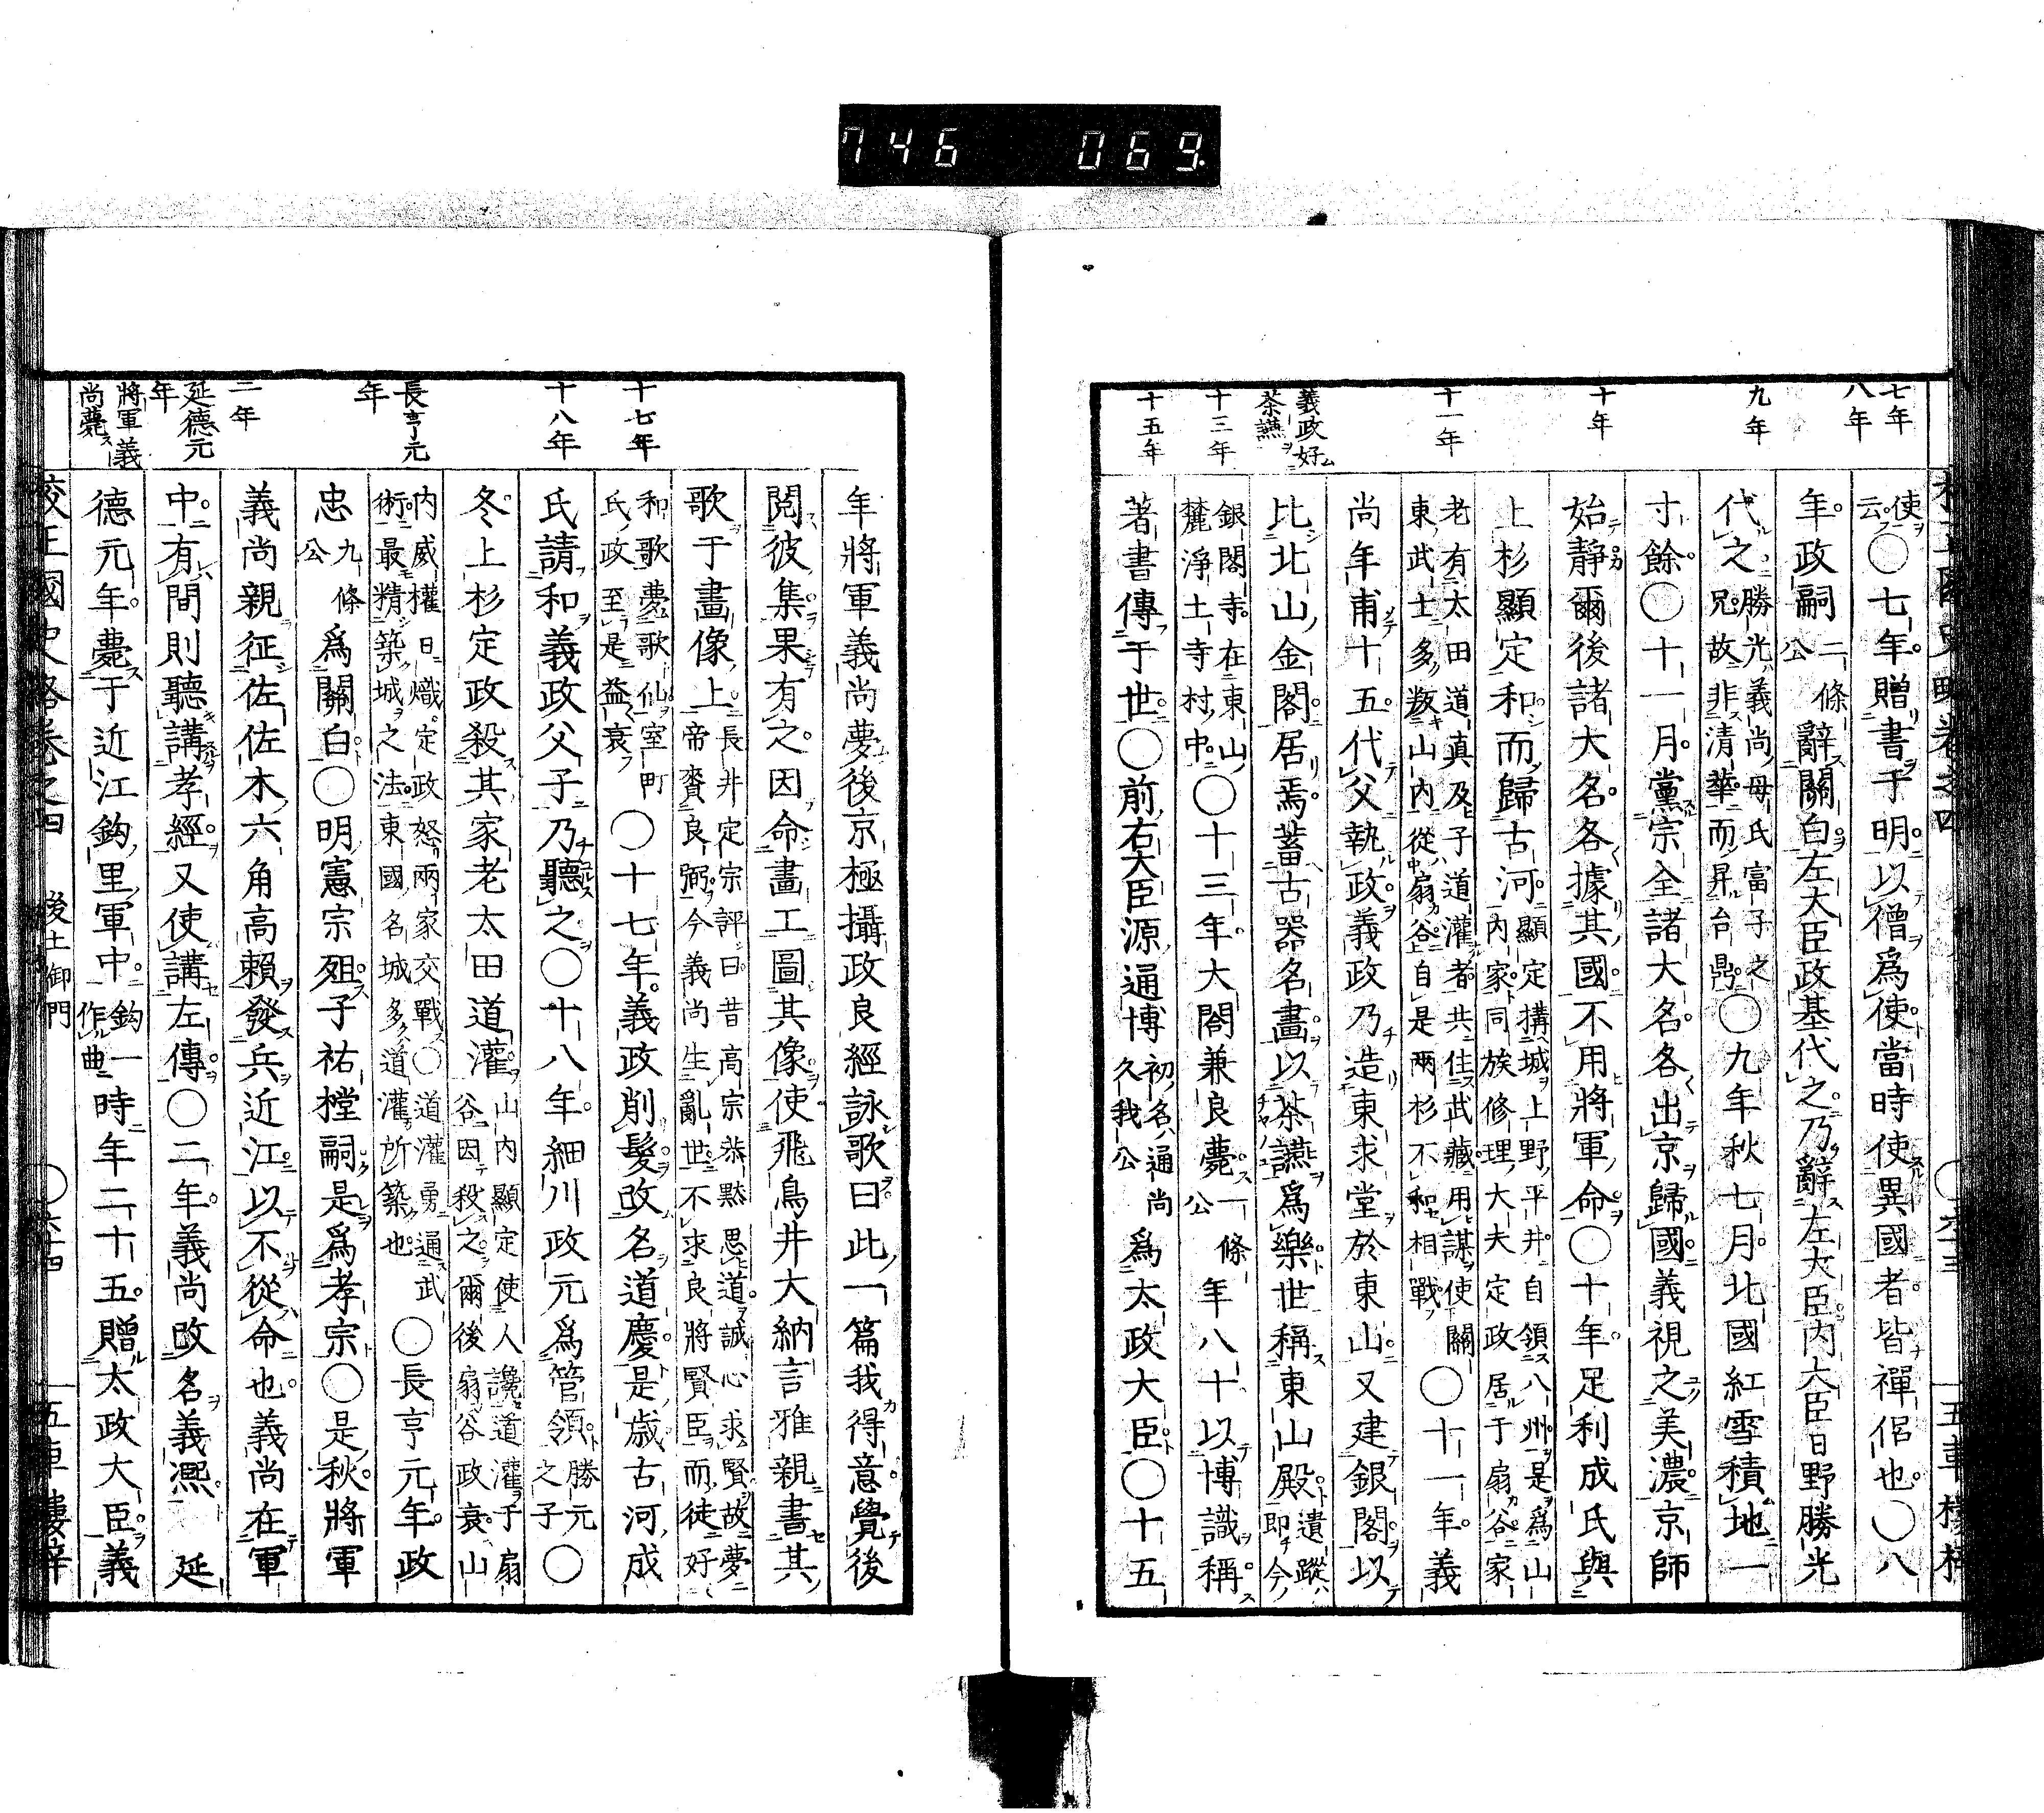 746 069.
七年
八年
九年
十年
十一年
義政好
茶讌
十三年
十五年
使
云○七年贈書于明以僧爲使當時使異國者皆禪侶也○八
年政嗣二條公辭關白左大臣政基代之乃辭左大臣內大臣日野勝光
代之勝光義尚母氏富子之
兄故非清華而昇台鼎○九年秋七月北國紅雪積地一
寸餘○十一月黨宗全諸大名各出京歸國義視之美濃京師
始靜爾後諸大名各據其國不用將軍命○十年足利成氏與
上杉顯定和而歸古河顯定搆城上野平井自領八州是爲山
內家同族修理大夫定政居于扇谷家
老有太田道真及子道灌者共住武藏用謀使關
東武士多叛山內從扇谷自是兩杉不和相戰○十一年義
尚年甫十五代父執政義政乃造東求堂於東山又建銀閣以
比北山金閣居焉蓄古器名畫以茶讌爲樂世稱東山殿遺蹤
即今
銀閣寺在東山
麓淨土寺村中○十三年大閤兼良薨一條公年八十以博識稱
著書傳于世○前右大臣源通博初名通尚
久我公爲太政大臣○十五
十七年
十八年
長亨元
年
二年
延德元
年
將軍義
尚薨
年將軍義尚夢後京極攝政良經詠歌曰此一篇我得意覺後
閱彼集果有之因命畫工圖其像使飛鳥井大納言雅親書其
歌于畫像上長井定宗評曰昔高宗恭默思道誠心求賢故夢
帝賚良弼今義尚生亂世不求良將賢臣而徒好
和歌夢歌仙室町
氏政至是益衰○十七年義政削髮改名道慶是歲古河成
氏請和義政父子乃聽之○十八年細川政元爲管領勝元
之子○
冬上杉定政殺其家老太田道灌山內顯定使人讒道灌于扇
谷因殺之爾後扇谷政衰山
內威權日熾定政怒兩家交戰○道灌勇通武
術最精築城之法東國名城多道灌所築也○長亨元年政
忠九條公爲關白○明憲宗殂子祐樘嗣是爲孝宗○是秋將軍
義尚親征佐佐木六角高賴發兵近江以不從命也義尚在軍
中有間則聽講孝經又使講左傳○二年義尚改名義凞 延
德元年薨于近江鈎里軍中鈎一
作曲時年二十五贈太政大臣義
校正國史略卷之四 後土御門 ○六十四 五車樓梓